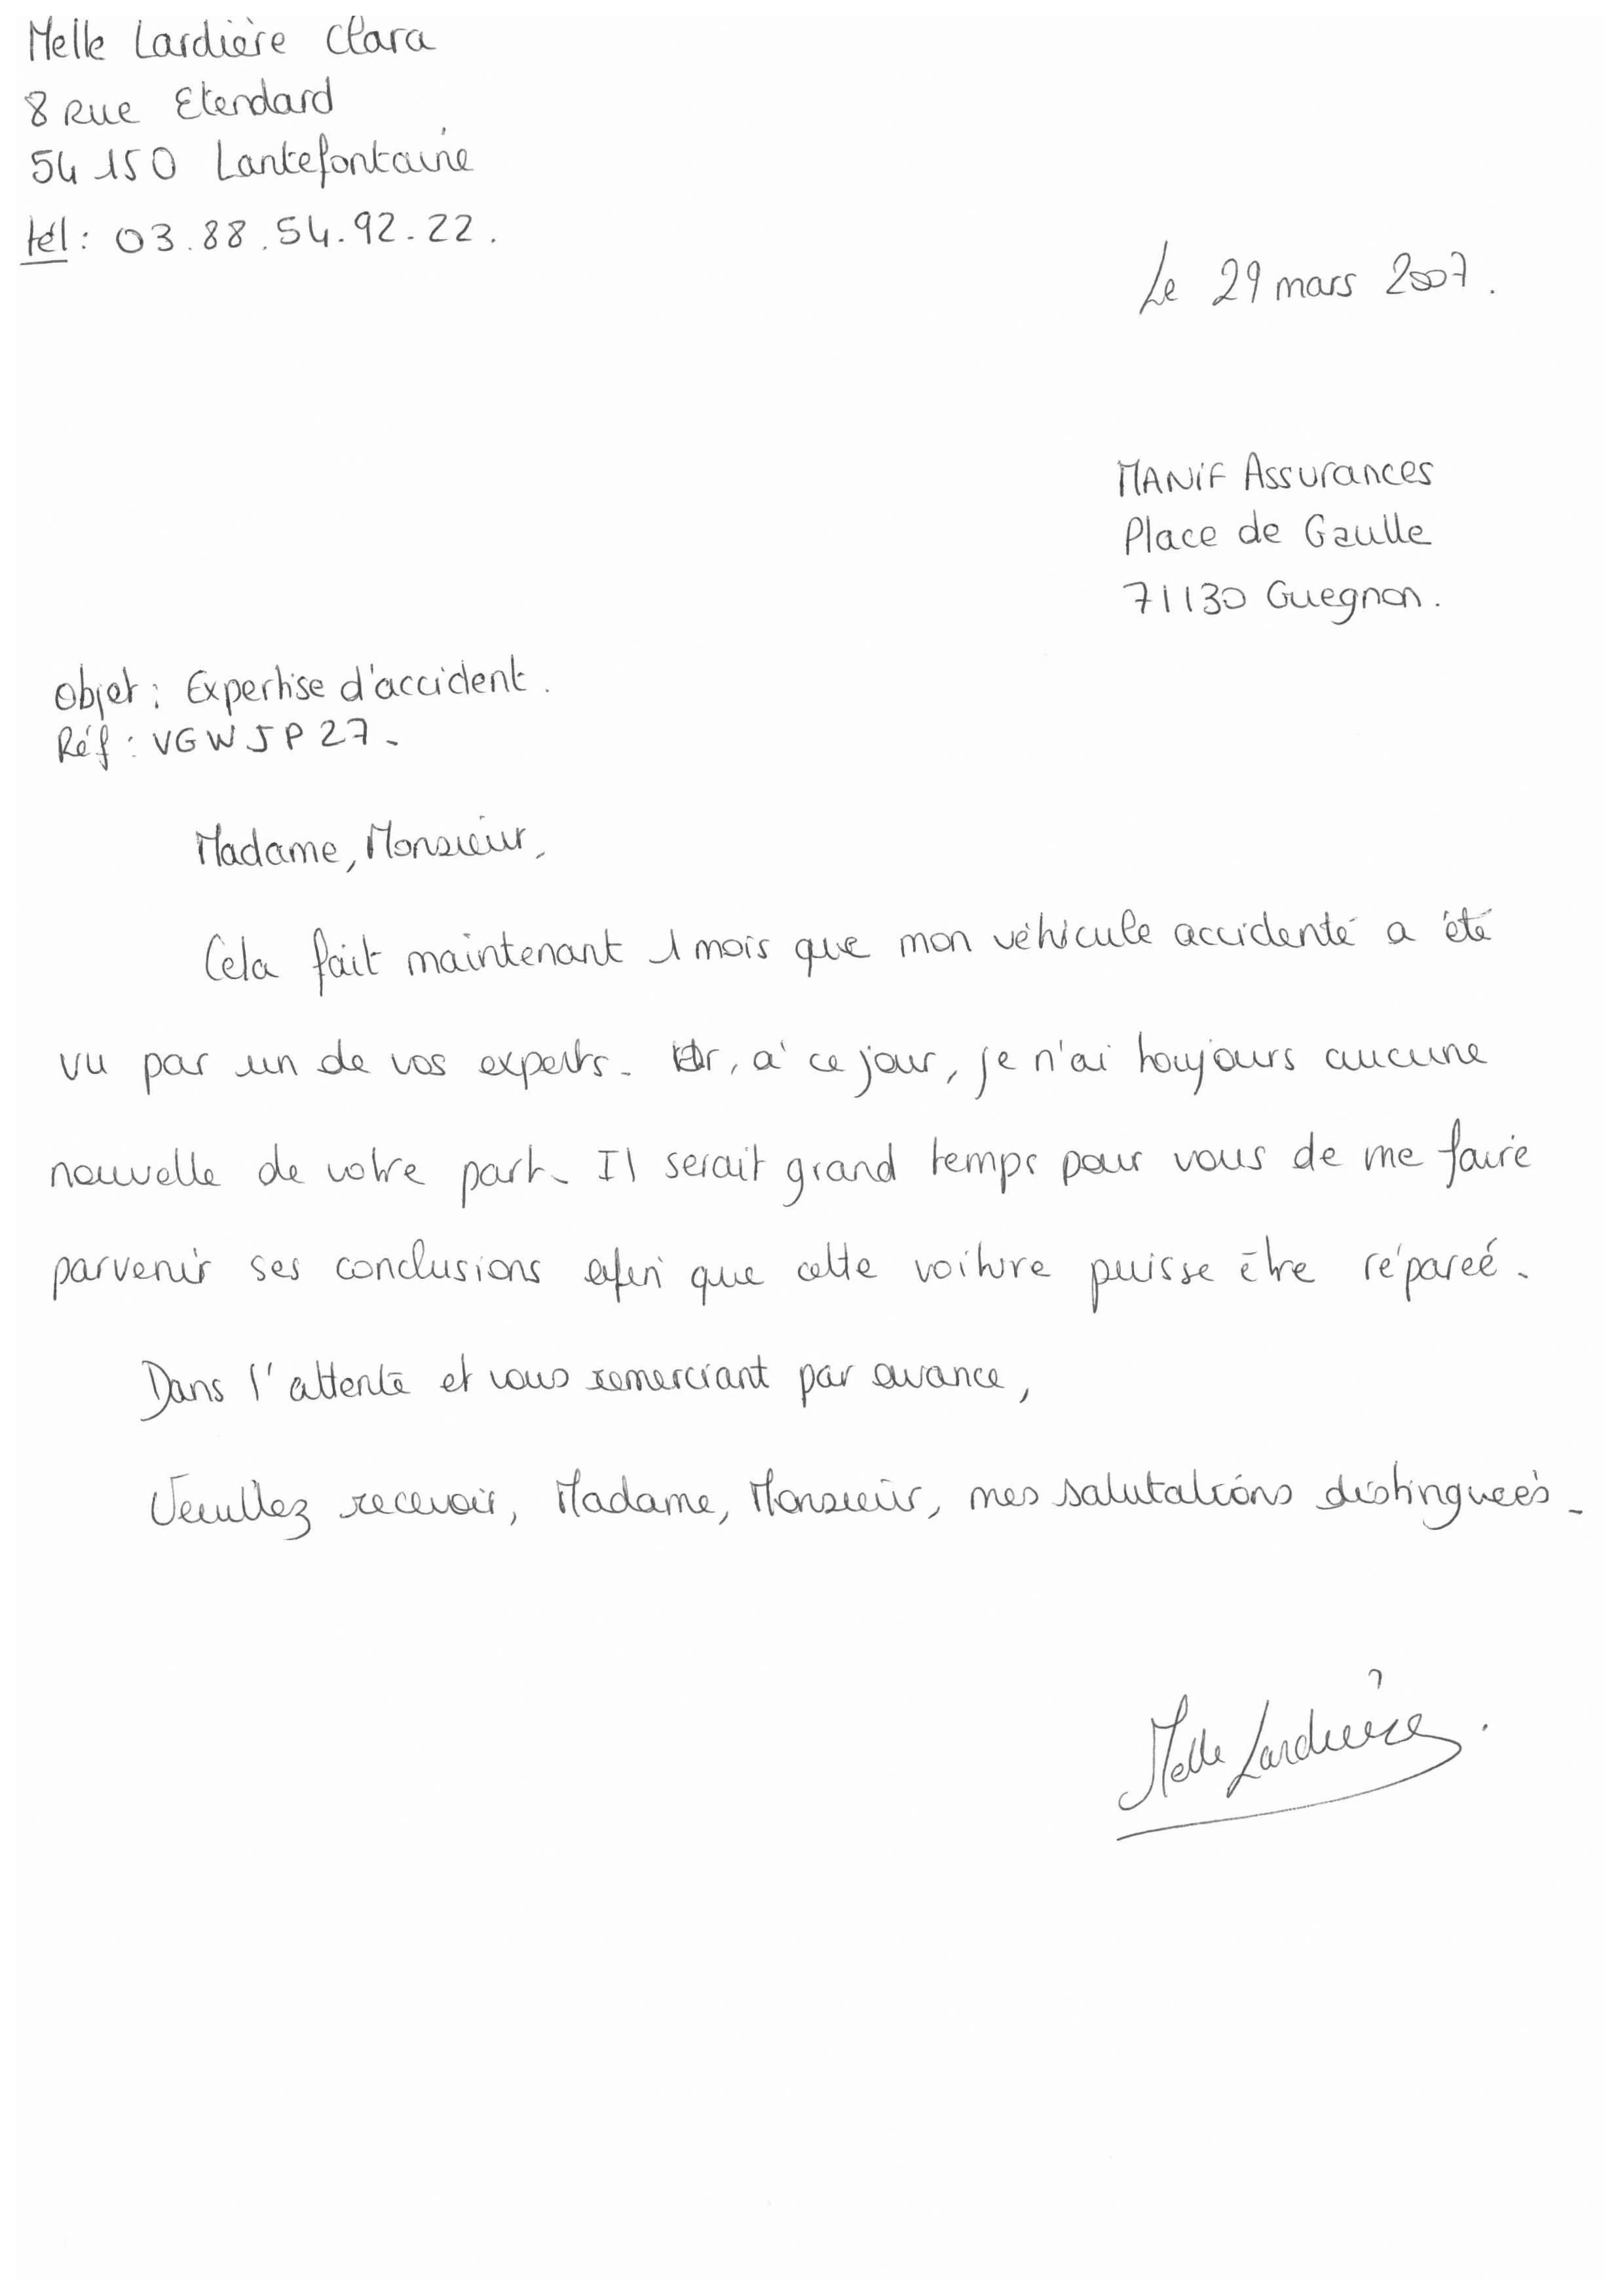 Melle Lardière Clara
8 Rue Etendard
54 150 Lantefontaine
tél : 03.88.54.92.22.
Le 29 mars 2007.
MANIF Assurances
Place de Gaulle
71130 Guegnon.
Objet : Expertise d'accident.
Réf : VGWJP27.
Madame, Monsieur,
Cela fait maintenant 1 mois que mon véhicule accidenté a été
vu par un de vos experts. Or, à ce jour, je n'ai toujours aucune
nouvelle de votre part. Il serait grand temps pour vous de me faire
parvenir ses conclusions afin que cette voiture puisse être réparée.
Dans l'attente et vous remerciant par avance,
Veuillez recevoir, Madame, Monsieur, mes salutations distinguées.
Melle Lardière.